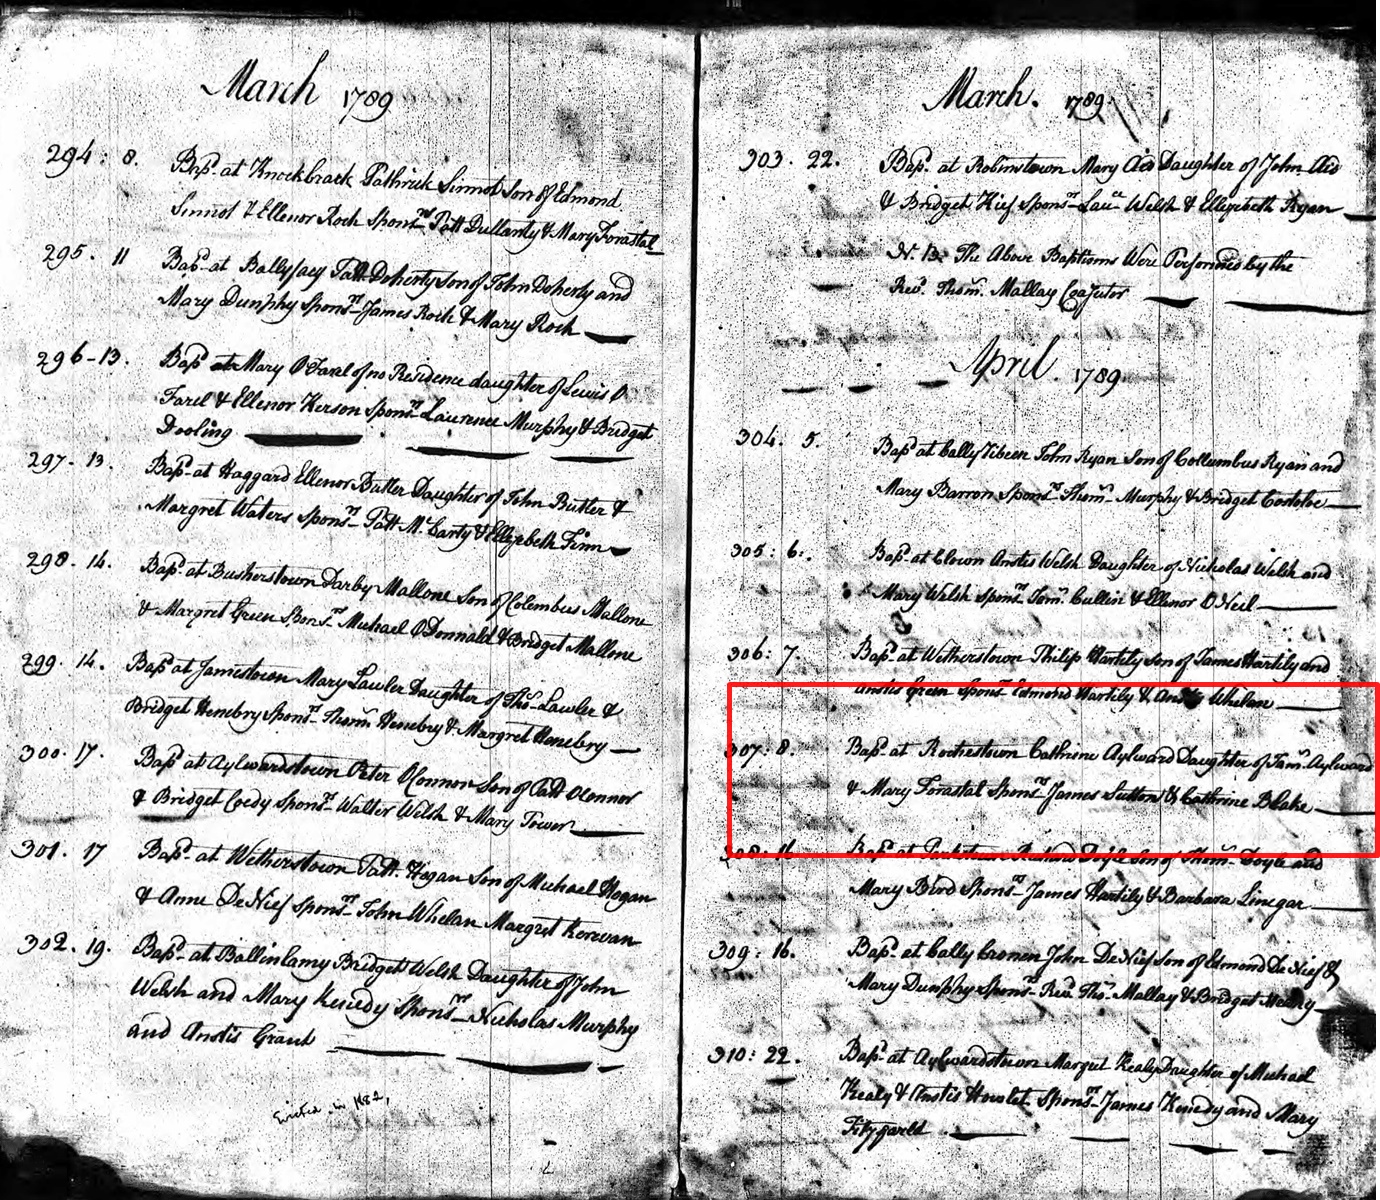 March 1789
294: 8. Bapd. at Knockbrack Pathrick Sinnot Son of Edmond
Sinnot & Ellenor Roch Sponsrs. Patt Dullanty & Mary Forastal
295. 11 Bapd. at Ballyfacy Patt. Doherty Son of John Doherty and
Mary Dunphy Sponsrs. James Roch & Mary Roch
296-13. Bapd. at Mary O Farel of no Residence daughter of Lewis O
Farel & Ellenor Kerson Sponsrs. Laurence Murphy & Bridget
Dooling
297. 13. Bapd. at Haggard Ellenor Butler Daughter of John Butler &
Margret Waters Sponsrs. Patt McCarty & Ellyzebeth Finn
298. 14. Bapd. at Busherstown Darby Mallone Son of Colembus Mallone
& Margret Green Sponsrs. Michael O Donnald & Bridget Mallone
299. 14. Bapd. at Jamestown Mary Lawler Daughter of Tho. Lawler &
Bridget Henebry Sponsrs. Thom. Henebry & Margret Henebry
300. 17. Bapd. at Aylwardstown Peter OConnor Son of Patt OConnor
& Bridget Coedy Sponsrs. Walter Welsh & Mary Tower
301. 17 Bapd. at Wetherstown Patt. Hogan Son of Michael Hogan
& Anne DeNief Sponsrs. John Whelan Margret Kerevan
302. 19. Bapd. at Ballinlamy Bridget Welsh Daughter of John
Welsh and Mary Kenedy Sponsrs. Nicholas Murphy
and Anstis Grant
in 1882,
March. 1789
303. 22. Bapd. at Robinstown Mary Daughter of John
& Bridget Hief Sponsrs. Lau. Welsh & Ellyzebeth Ryan
N. B. The Above Baptisms Were Performed by the
Revd. Thom. Mallay Coajutor
April. 1789
304. 5. Bapd. at Ballytibeen John Ryan Son of Collumbus Ryan and
Mary Barron Sponsrs. Thom. Murphy & Bridget Costoloe
305: 6: Bapd. at Clown Anstis Welsh Daughter of Nicholas Welsh and
Mary Welsh Sponsrs. Jam. Cullin & Ellenor O Neil
306: 7. Bapd. at Wetherstown Philip Hartily Son of James Hartily and
Anstis Green Sponsrs. Edmond Hartily & Whelan
307: 8. Bapd. at Rochestown Cathrine Aylward Daughter of Jam. Aylward
& Mary Forastal Sponsrs. James Sutton & Cathrine Blake
308: 16 Bapd. at Richard Doyle Son of Thom. Doyle and
Mary Bird Sponsrs. James Hartily & Barbara Linegar
309: 16. Bapd. at Bally Cronen John DeNief Son of Edmond DeNief &
Mary Dunphy Sponsrs. Revd. Tho. Mallay & Bridget
310: 22. Bapd. at Aylwardstown Margret Kealy Daughter of Michael
Kealy & Anstis Howlet Sponsrs. James Kenedy and Mary
Fitzgareld